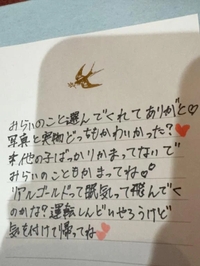 みらいのこと選んでくれてありがと♡
写真と実物どっちもかわいかった?❤
本他の子ばっかりかまってないで
みらいのこともかまってね♡
リアルゴールドって眠気って飛んでく
のかな?運転しんどいやろうけど
気を付けて帰ってね❤